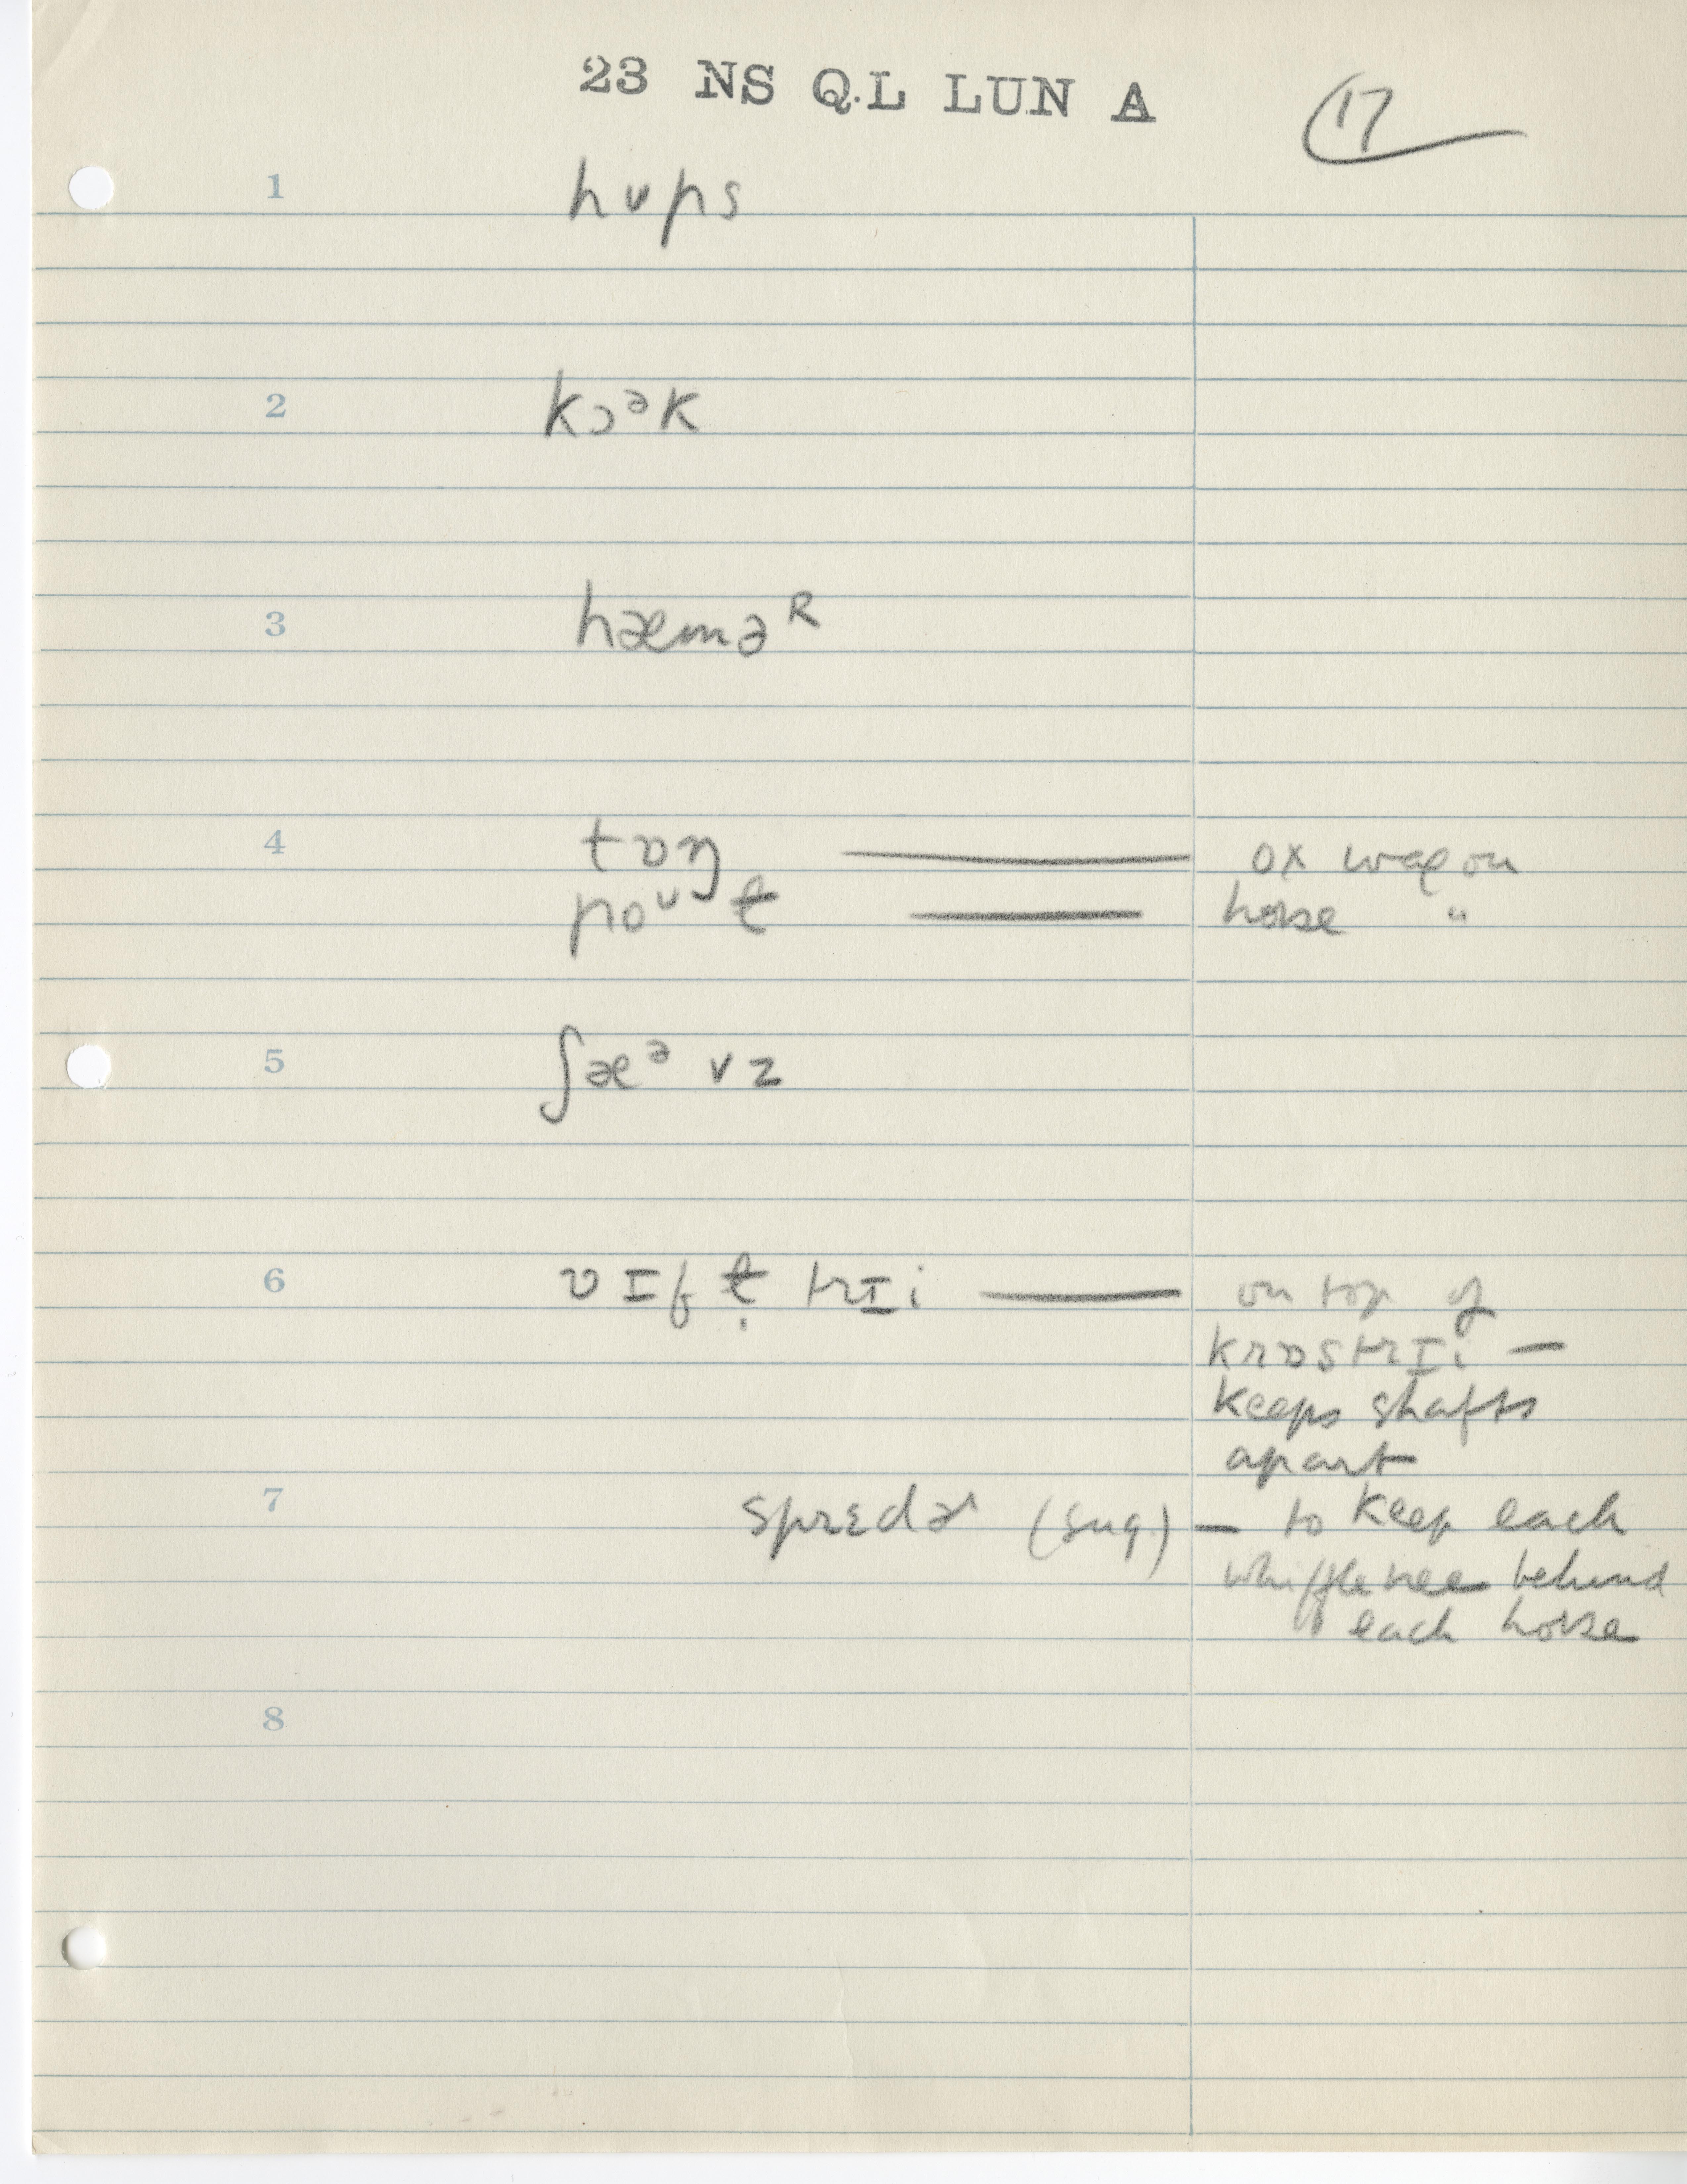 23 NS QL LUN A
17
1 hʊps
2 kɔᵊk
3 hæməᴿ
4 tɒŋ — ox wagon
poᶷɫ — horse "
5 ʃæᵊvz
6 ʋɪfɫ̣trɪi — on top of
krɒstrɪi —
keeps shafts
apart
7 sprɛdɚ (sug.) — to keep each
whiffletree behind
each horse
8